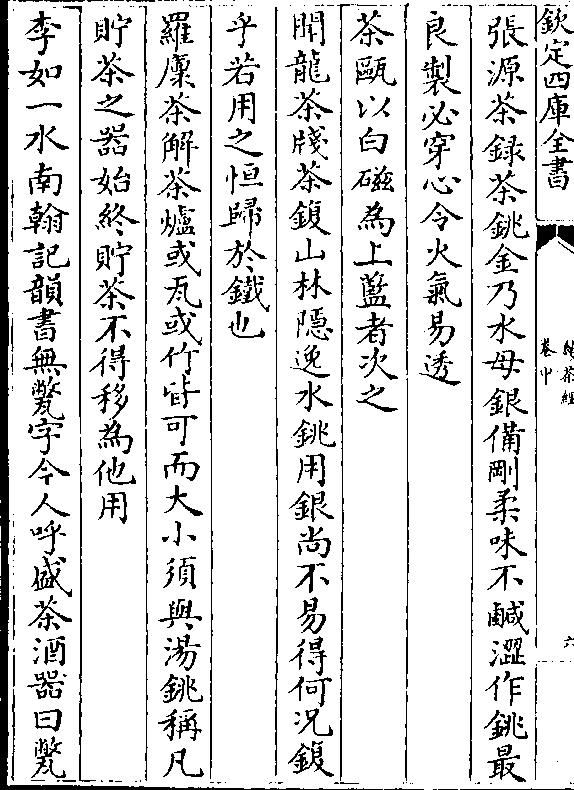 欽定四庫全書
續茶經
卷中
六
張源茶録茶銚金乃水母銀備剛柔味不鹹澀作銚最
良製必穿心令火氣易透
茶甌以白磁為上藍者次之
聞龍茶牋茶鍑山林隱逸水銚用銀尚不易得何况鍑
乎若用之恒歸於鐵也
羅廩茶解茶爐或瓦或竹皆可而大小須與湯銚稱凡
貯茶之器始終貯茶不得移為他用
李如一水南翰記韻書無㼽字今人呼盛茶酒器曰㼽